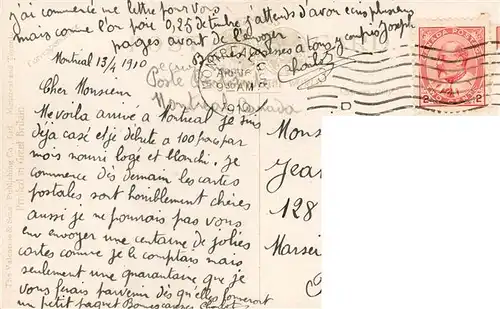 j'ai commencé une lettre pour vous
mais comme l'on paie 0,25 de trube j'attends d'avoir plusieurs
pages avant de l'envoyer
Bonnes caresses a tous y compris Joseph
Charles
Montreal 13/4 1910
Poste
Montreal Canada
CANADA POSTAGE
2 CENTS 2
Cher Monsieur
Me voila arrivé à Montreal je suis
déja casé et je débute a 100 par
mois nourri logé et blanchi. je
commence dès demain les cartes
postales sont horriblement chères
aussi je ne pourrais pas vous
en envoyer une centaine de jolies
cartes comme je le comptais mais
seulement une quarantaine que je
vous ferais parvenir dès qu'elles formeront
un petit paquet Bonnes caresses Charles
Mons
Jean
128
Marsei
The Valentine & Sons' Publishing Co., Ltd., Montreal and Toronto
Printed in Great Britain